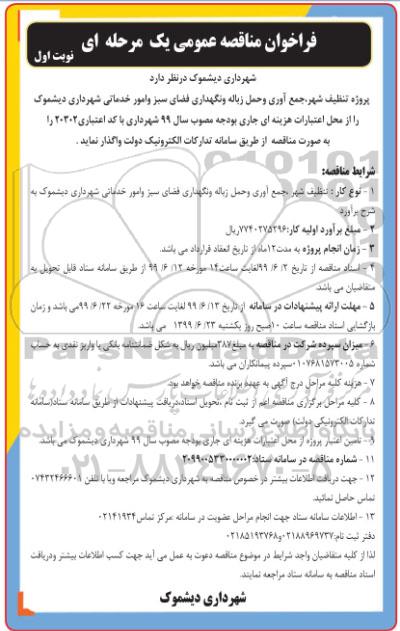 فراخوان مناقصه عمومی یک مرحله ای
نوبت اول
شهرداری دیشموک درنظر دارد
پروژه تنظیف شهر،جمع آوری وحمل زباله ونگهداری فضای سبز وامور خدماتی شهرداری دیشموک
را از محل اعتبارات هزینه ای جاری بودجه مصوب سال ۹۹ شهرداری با کد اعتباری۲۰۳۰۲ را
به صورت مناقصه از طریق سامانه تدارکات الکترونیک دولت واگذار نماید .
شرایط مناقصه:
۱ - نوع کار : تنظیف شهر ،جمع آوری وحمل زباله ونگهداری فضای سبز وامور خدماتی شهرداری دیشموک به
شرح برآورد
۲ - مبلغ برآورد اولیه کار:۷۷۴۰۲۷۵۲۹۶ریال
۳ - زمان انجام پروژه به مدت۱۲ماه از تاریخ انعقاد قرارداد می باشد.
۴ - اسناد مناقصه از تاریخ ۳/ ۶/ ۹۹لغایت ساعت۱۴ مورخه ۱۲/ ۶/ ۹۹ از طریق سامانه ستاد قابل تحویل به
متقاضیان می باشد.
۵ - مهلت ارائه پیشنهادات در سامانه از تاریخ ۱۳/ ۶/ ۹۹ لغایت ساعت ۱۶ مورخه ۲۲/ ۶/ ۹۹می باشد و زمان
بازگشایی اسناد مناقصه ساعت ۱۰صبح روز یکشنبه ۲۳/ ۶/ ۱۳۹۹ می باشد.
۶ - میزان سپرده شرکت در مناقصه به مبلغ۳۸۷میلیون ریال به شکل ضمانتنامه بانکی یا واریز نقدی به حساب
شماره ۰۱۰۷۶۸۱۵۷۳۰۰۵سپرده پیمانکاران می باشد.
۷ - هزینه کلیه مراحل درج آگهی به عهده برنده مناقصه خواهد بود.
۸ - کلیه مراحل برگزاری مناقصه اعم از ثبت نام ،تحویل اسناد،دریافت پیشنهادات از طریق سامانه ستاد(سامانه
تدارکات الکترونیکی دولت) صورت می گیرد.
۹ - تامین اعتبار پروژه از محل اعتبارات هزینه ای جاری بودجه مصوب سال ۹۹ شهرداری دیشموک می باشد.
۱۱ - شماره مناقصه در سامانه ستاد:۲۰۹۹۰۰۵۳۳۰۰۰۰۰۰۲
۱۲ - جهت دریافت اطلاعات بیشتر در خصوص مناقصه به شهرداری دیشموک مراجعه ویا با تلفن ۰۷۴۳۲۴۶۶۶۰۱
تماس حاصل نمائید.
۱۳ - اطلاعات سامانه ستاد جهت انجام مراحل عضویت در سامانه :مرکز تماس۰۲۱۴۱۹۳۴
دفتر ثبت نام:۰۲۱۸۸۹۶۹۷۳۷و۰۲۱۸۵۱۹۳۷۶۸
لذا از کلیه متقاضیان واجد شرایط در موضوع مناقصه دعوت به عمل می آید جهت کسب اطلاعات بیشتر ودریافت
اسناد مناقصه به سامانه ستاد مراجعه نمایند.
شهرداری دیشموک
پایگاه اطلاع رسانی مناقصه و مزایده
۰۲۱-۸۸۳۴۹۶۷۰-۵